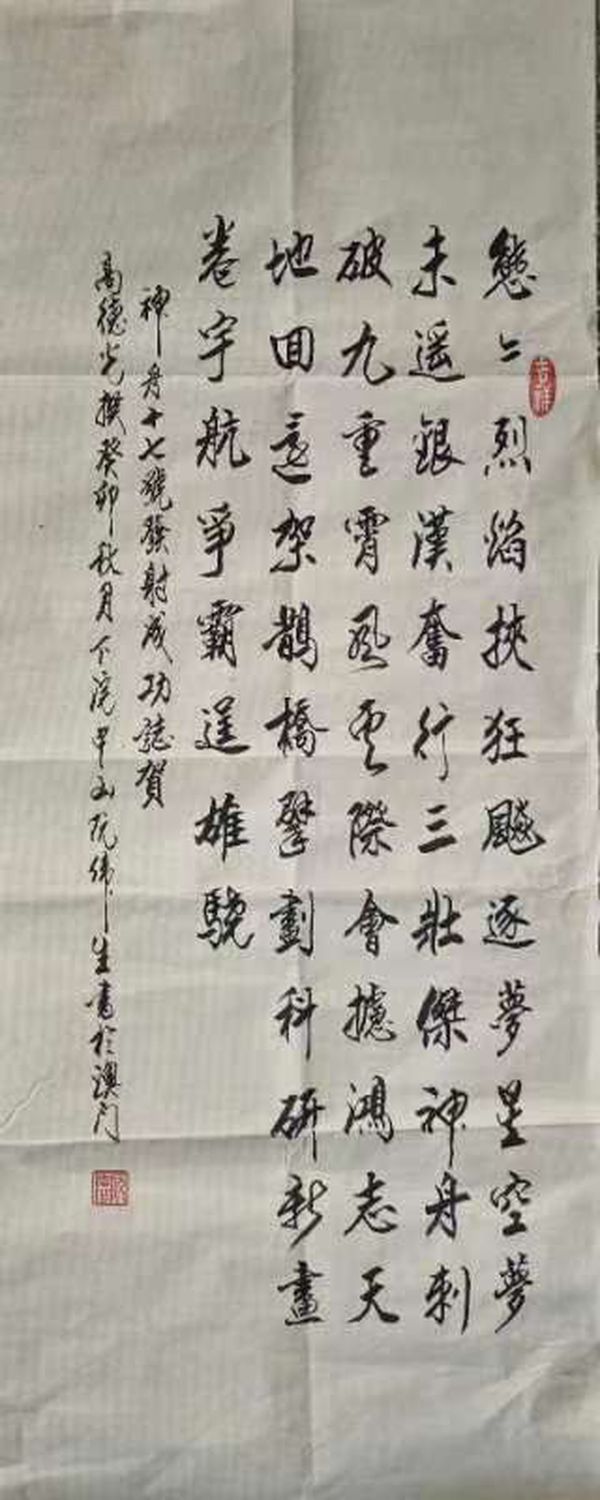 熊〻烈焰挾狂飈逐夢星空夢
未遥銀漢奮行三壯傑神舟刺
破九重霄風雲際會攄鴻志天
地回還架鵲橋擘劃科研新畫
卷宇航爭霸逞雄驍
神舟十七號發射成功誌賀
高德光撰癸卯秋月下浣中山阮偉生書於澳門
吉祥